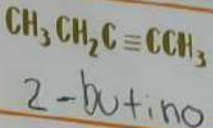 CH₃CH₂C≡CCH₃
2-butino